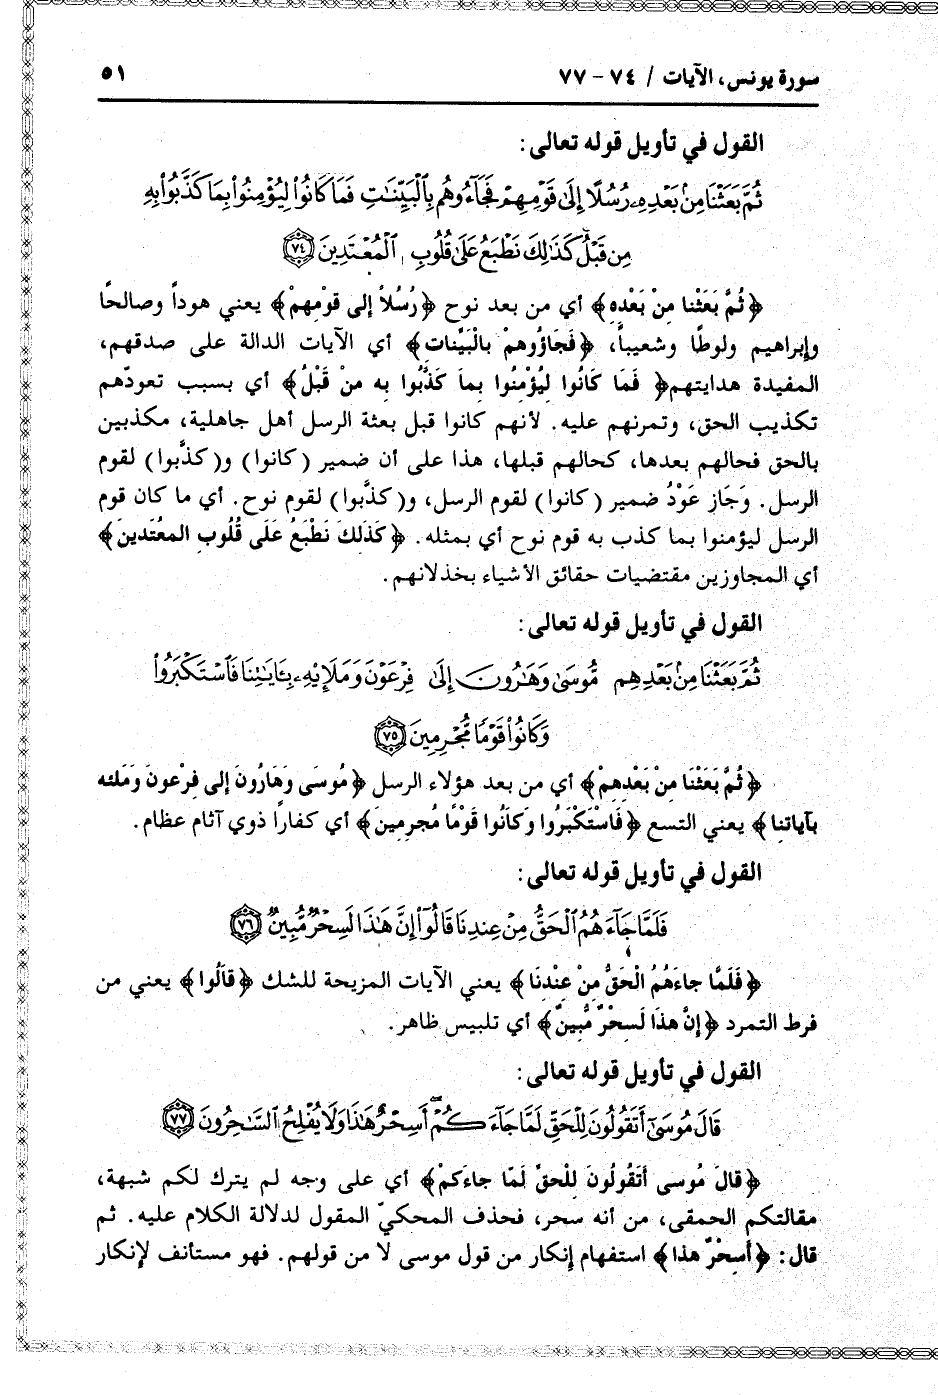 سورة يونس، الآيات / ٧٤ - ٧٧ ٥١
القول في تأويل قوله تعالى:
ثُمَّ بَعَثْنَا مِنْ بَعْدِهِۦ رُسُلًا إِلَىٰ قَوْمِهِمْ فَجَآءُوهُم بِٱلْبَيِّنَٰتِ فَمَا كَانُوا۟ لِيُؤْمِنُوا۟ بِمَا كَذَّبُوا۟ بِهِ
مِن قَبْلُ كَذَٰلِكَ نَطْبَعُ عَلَىٰ قُلُوبِ ٱلْمُعْتَدِينَ ٧٤
﴿ثُمَّ بَعَثْنا مِنْ بَعْدِهِ﴾ أي من بعد نوح ﴿رُسُلاً إلى قوْمِهِمْ﴾ يعني هوداً وصالحًا
وإبراهيم ولوطًا وشعيباً، ﴿فَجَاؤُوهمْ بالْبَيِّنات﴾ أي الآيات الدالة على صدقهم،
المفيدة هدايتهم﴿ فَمَا كَانُوا ليُؤْمِنُوا بمِا كَذَّبُوا به منْ قَبْلُ﴾ أي بسبب تعودّهم
تكذيب الحق، وتمرنهم عليه. لأنهم كانوا قبل بعثة الرسل أهل جاهلية، مكذبين
بالحق فحالهم بعدها، كحالهم قبلها، هذا على أن ضمير (كانوا) و(كذَّبوا) لقوم
الرسل. وَجَاز عَوْدُ ضمير (كانوا) لقوم الرسل، و(كذَّبوا) لقوم نوح. أي ما كان قوم
الرسل ليؤمنوا بما كذب به قوم نوح أي بمثله. ﴿كَذَلِكَ نَطْبَعُ عَلَى قُلُوبِ المعْتَدينَ﴾
أي المجاوزين مقتضيات حقائق الأشياء بخذلانهم.
القول في تأويل قوله تعالى:
ثُمَّ بَعَثْنَا مِنۢ بَعْدِهِم مُّوسَىٰ وَهَٰرُونَ إِلَىٰ فِرْعَوْنَ وَمَلَإِيْهِۦ بِـَٔايَٰتِنَا فَٱسْتَكْبَرُوا۟
وَكَانُوا۟ قَوْمًا مُّجْرِمِينَ ٧٥
﴿ثُمَّ بَعَثْنَا مِنْ بَعْدِهِمْ﴾ أي من بعد هؤلاء الرسل ﴿مُوسَى وَهَارُونَ إلى فِرْعونَ وَمَلئه
بآياتِنا﴾ يعني التسع ﴿فَاسْتَكْبَرُوا وَكَانُوا قَوْمًا مُجرِمينَ﴾ أي كفاراً ذوي آثام عظام.
القول في تأويل قوله تعالى:
فَلَمَّا جَآءَهُمُ ٱلْحَقُّ مِنْ عِندِنَا قَالُوٓا۟ إِنَّ هَٰذَا لَسِحْرٌ مُّبِينٌ ٧٦
﴿فَلَمَّا جاءَهُمُ الْحَقُّ مِنْ عِنْدِنَا﴾ يعني الآيات المزيحة للشك ﴿قالُوا﴾ يعني من
فرط التمرد ﴿إنَّ هذَا لَسِحْرٌ مُّبينٌ﴾ أي تلبيس ظاهر.
القول في تأويل قوله تعالى:
قَالَ مُوسَىٰٓ أَتَقُولُونَ لِلْحَقِّ لَمَّا جَآءَكُمْ أَسِحْرٌ هَٰذَا وَلَا يُفْلِحُ ٱلسَّٰحِرُونَ ٧٧
﴿قالَ مُوسى أتَقُولُونَ لِلْحقِّ لَمّا جاءَكمْ﴾ أي على وجه لم يترك لكم شبهة،
مقالتكم الحمقى، من أنه سحر، فحذف المحكيّ المقول لدلالة الكلام عليه. ثم
قال: ﴿أَسِحْرٌ هذا﴾ استفهام إنكار من قول موسى لا من قولهم. فهو مستأنف لإنكار